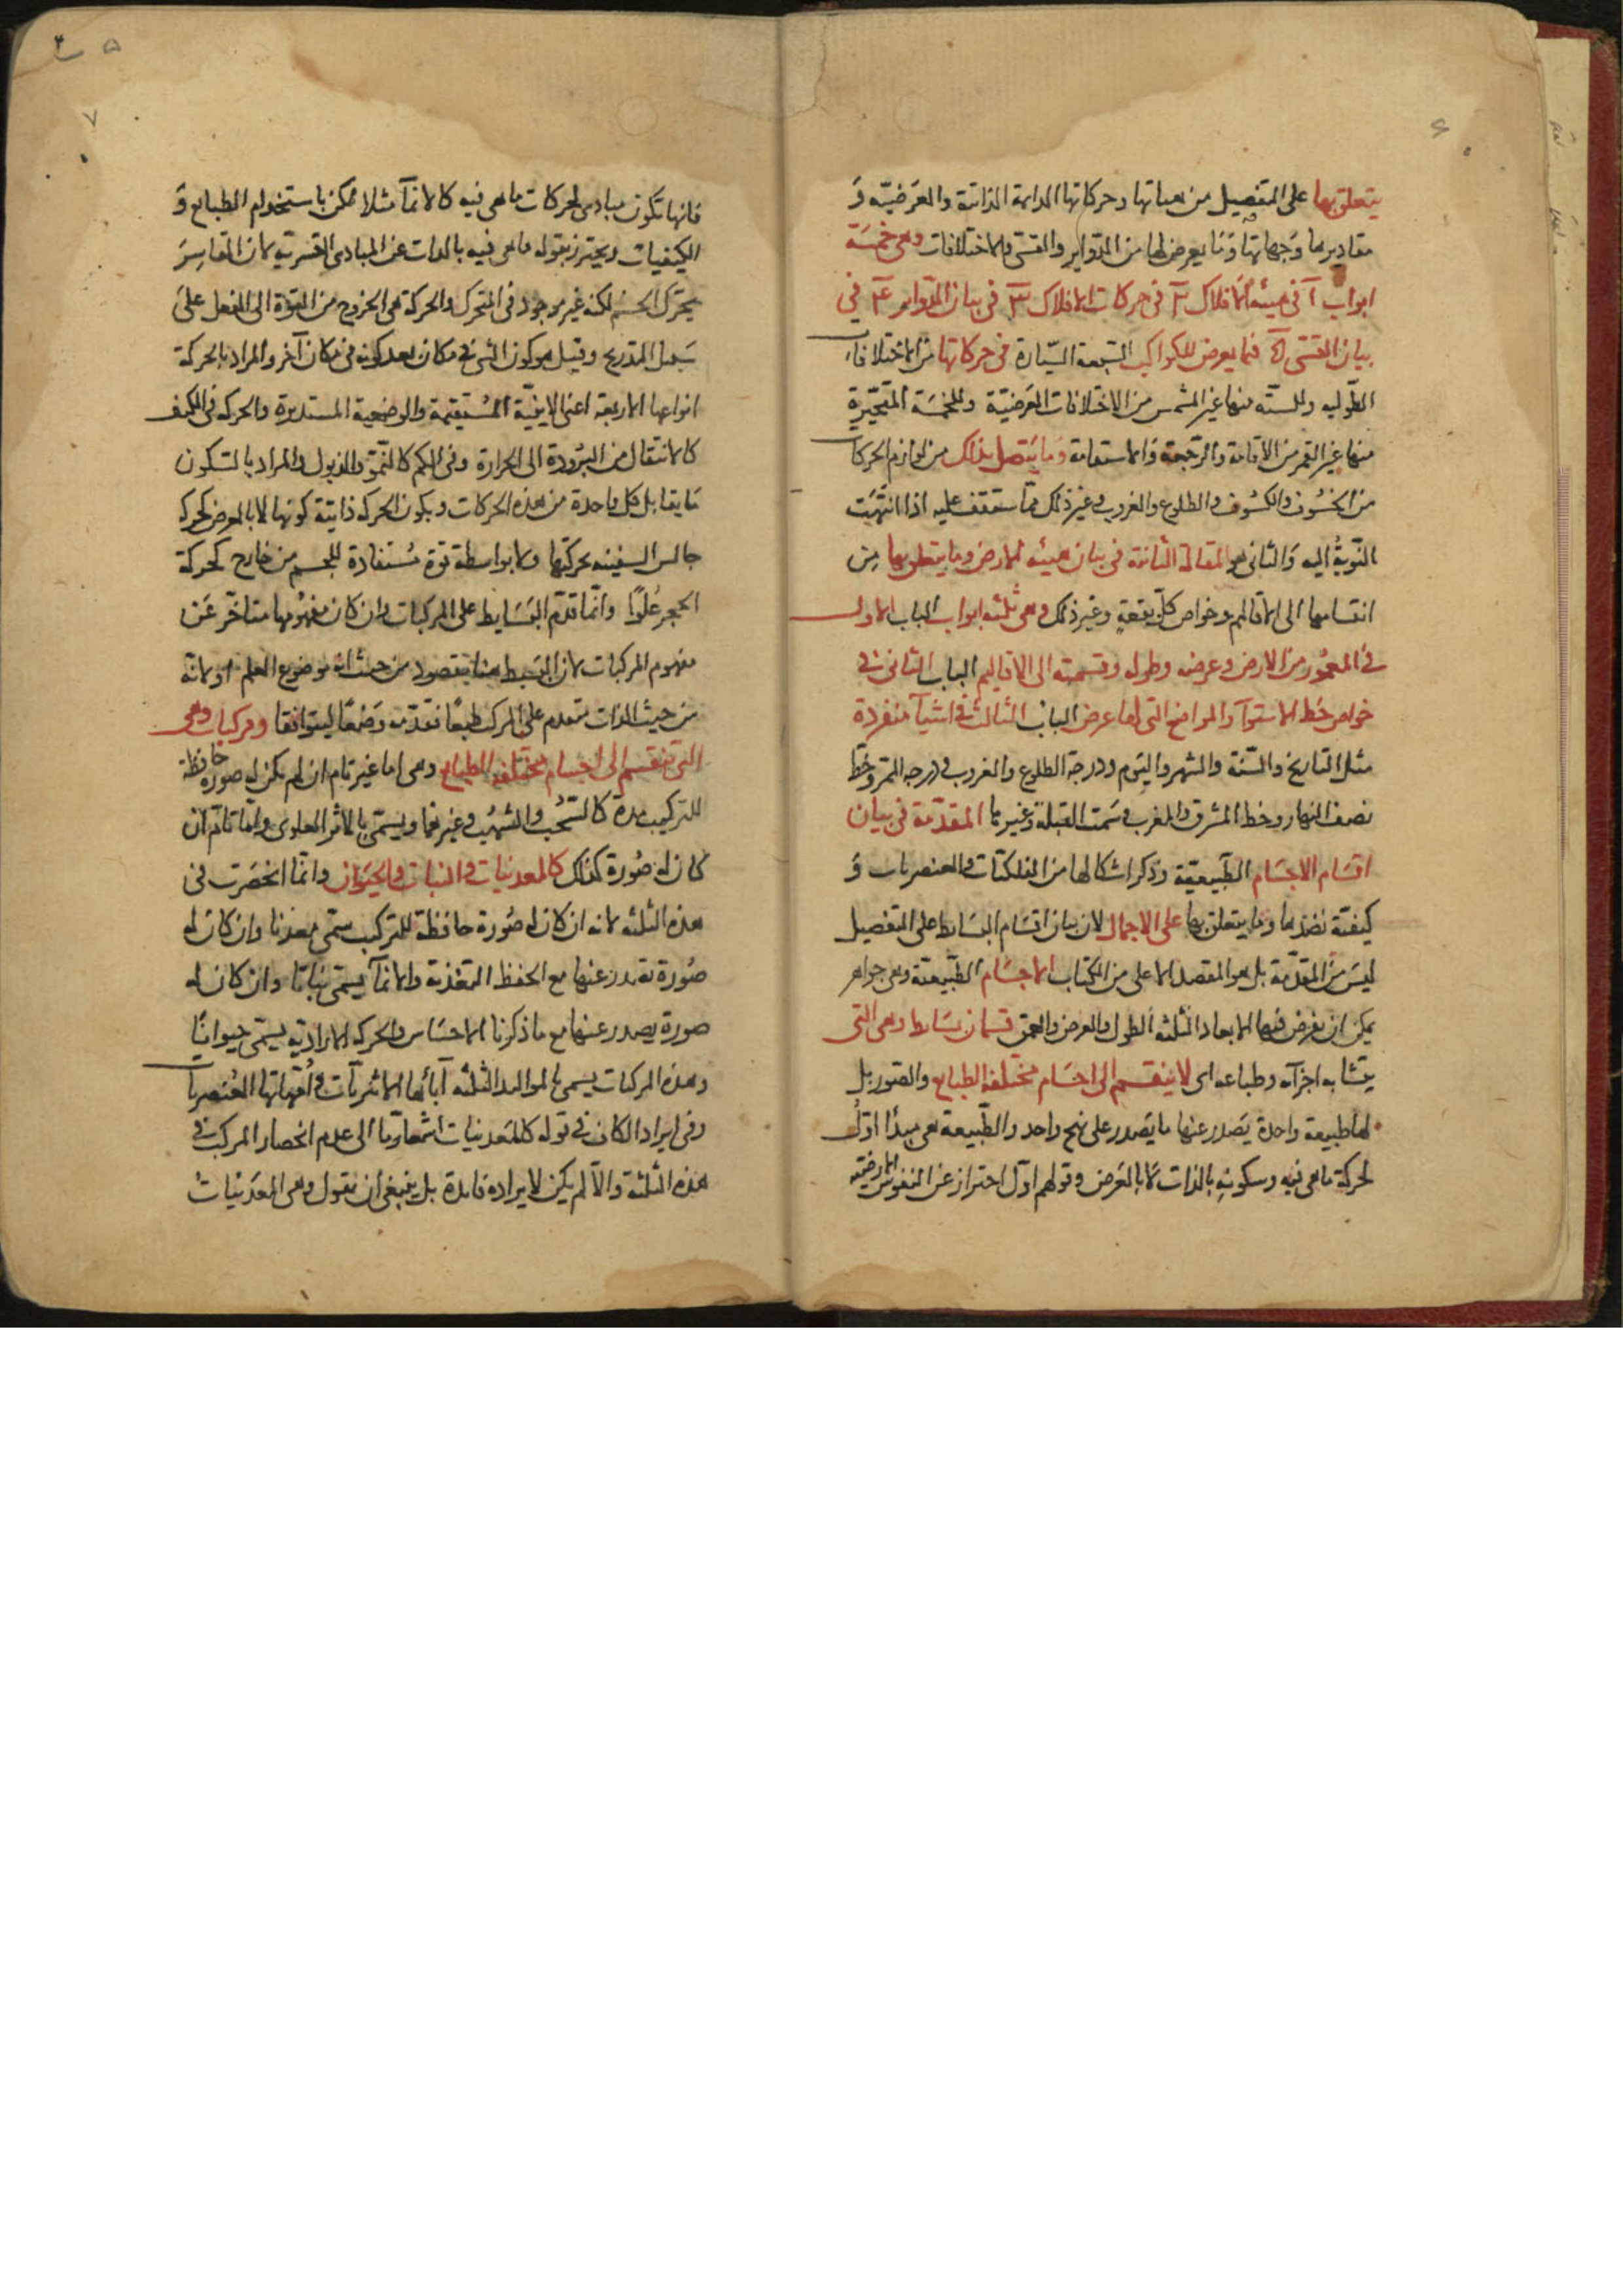 ٦
يتعلق بها على التفصيل من هيئاتها وحركاتها الدايمة الذاتية والعرضيّة وَ
مقاديرها وَجهاتها وَمَا يعرض لها من الدّواير والقسى والاختلافات وهى خمسَة
ابواب آ فى هيئة الافلاك ب فى حركات الافلاك ج فى بيان الدّواير د فى
بيان القسى ه فيما يعرض للكواكب السّبعة السّيّارة فى حركاتها من الاختلافات
الطّوليه وللستّه منها غير الشمس من الاختلافات العَرضيّة وللخمسَة المتحيّرة
منها غير القمر من الاقامة والرّجعة وَالاستقامة وَما يتّصل بذلك من لوازم الحركات
من الخسُوف والكسُوف والطلوع والغروب وغير ذلك ممّا ستقف عليه اذا انتهَت
النّوبةُ اليه وَالثانى هو المقالة الثّانية فى بيان هيئه الارض وما يتعلق بها مِن
انقسامها الى الاقاليم وخواص كلّ بقعةٍ وغير ذلك وهى ثلثه ابواب الباب الاول
فى المعمُور من الارض وعرضه وطوله وقسمته الى الاقاليم الباب الثانى فى
خواص خط الاستوآ والمواضع التى لها عرض الباب الثالث فى اشيآ منفردة
مثل التاريخ والسّنة والشهر واليَوم ودرجة الطلوع والغروب ودرجه الممر وخط
نصف النهار وخط المشرق والمغرب وسَمت القبلة وغيرها المقدّمة فى بيان
اقسَام الاجسَام الطّبيعيّة وذكر اشكالها من الفلكيّات والعنصريات وَ
كيفيّة نضدها وما يتعلق بها على الاجمال لان بيان اقسَام البسَايط على التفصيل
ليسَ منَ المقدّمة بل هو المقصد الاعلى من الكتاب الاجسَام الطّبيعيّة وهى جواهر
يمكن ان يفرض فيها الابعاد الثلثه الطول والعرض والعمق قسمان بسَايط وهى التى
يتشابه اجزآه وطباعه اى لا ينقسم الى اجسَام مختلفة الطبايع والصّور بل
لها طبيعة واحدة يَصدر عنها ما يَصدر على نهج واحد والطّبيعة هى مبدأ اوّل
لحركة ما هى فيه وسكونهِ بالذات لا بالعَرض وقولهم اوّل احتراز عن النفوس الارضيّة
٧
فانها تكون مبادى لحركات ما هى فيه كالانمآ مثلا لكن باستخدام الطبايع وَ
الكيفيات ويحترز بقوله ما هى فيه بالذات عن المبادى القسريّه لان القاسِرَ
يحرّك الجسم لكنه غير موجود فى المتحرك والحركة هى الخروج من القوّة الى الفعل علىَ
سَبيل التدريج وقيل هو كون الشى فى مكان بعد كونه فى مكان آخر والمراد بالحركة
انواعها الاربعه اعنى الاينيّة المُستقيمة والوضعية المستديرة والحركه فى الكيف
كالانتقال من البرُودة الى الحرارة وفى الكم كالنّموّ والذبول والمراد بالسكون
مَا يقابل كل واحدة من هذه الحركات وبكون الحركه ذاتيّة كونها لا بالعرض كحركه
جالس السفينه بحركتها ولا بواسطة قوّة مُستفادة للجسم من خارج كحركة
الحجر عُلوًا وانّما قدّم البسَايط على المركبات وان كان مفهومها متاخّر عَن
مفهوم المركبات لان البسيط هنا مقصود من حيث انه موضوع العلم او لانّه
من حيث الذات متقدم على المركب طبعًا فقدّمه وَضعًا ليتوافقا ومركبات وهى
التى تنقسم الى اجسام مختلفه الطبايع وهى اما غير تام ان لم يكن له صورة حافظة
للتركيب مدة كالسّحُب والشهُب وغيرهما ويسَمّى بالاثر العلوى وامّا تامّ ان
كان له صُورة كذلك كالمعدنيات والنبات والحيَوان وانّما انحصَرت فى
هذه الثلثه لانه ان كان له صُورة حافظة للتركيب يسمّى معدنا وان كان له
صُورة تصدر عنها مع الحفظ التغذية والانمآ يسمّى نباتا وان كان له
صورة يصدر عنها مع ما ذكرنا الاحسَاس والحركه الاراديّه يسمّى حيوانًا
وهذه المركبات يسمى بالمواليد الثلثه آبآئها الاثيريّات وامّهاتها العُنصريات
وفى ايراد الكاف فى قوله كالمعَدنيات اشعارٌ ما الى عدم انحصار المركب فى
هذه الثلثة والّا لم يكن لايراده فايدة بل ينبغى ان يقول وهى المعَدنيات